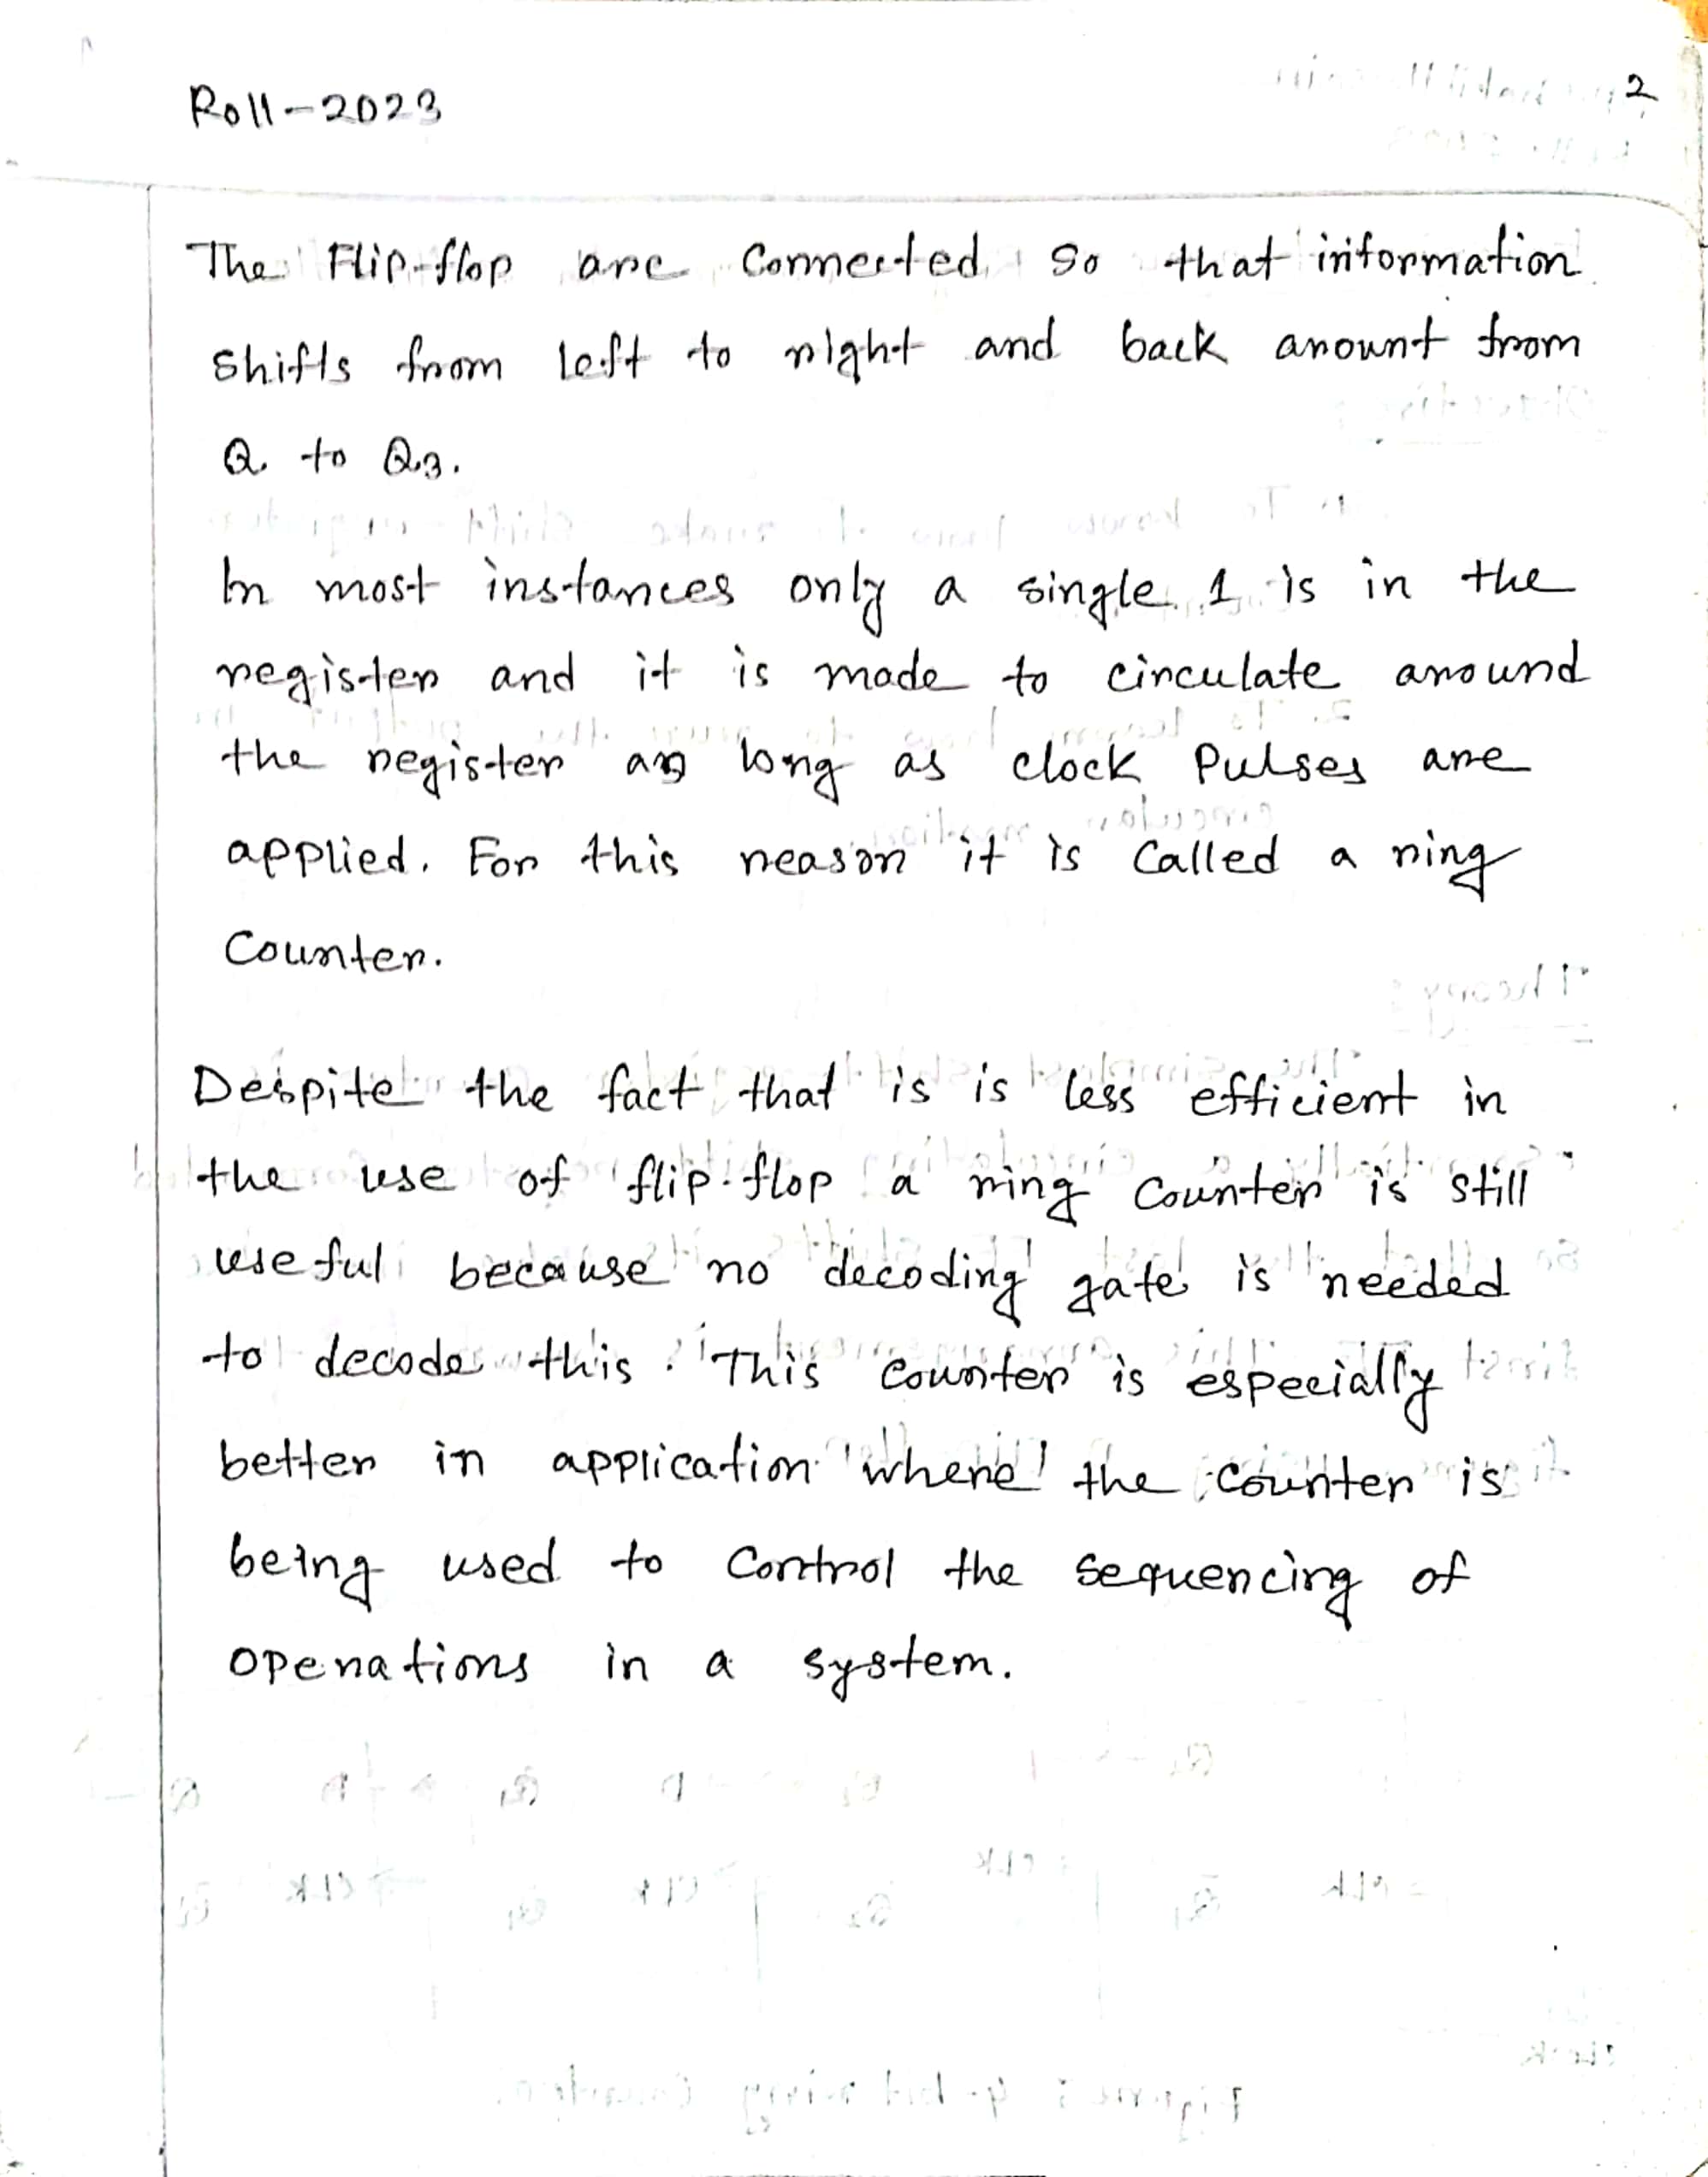 Roll-2023
2
The Flip-flop are Connected so that information
shifts from left to right and back arount from
Q. to Q3.
In most instances only a single 1 is in the
register and it is made to circulate around
the register as long as clock Pulses are
applied. For this reason it is Called a ring
Counter.
Despite the fact that is is less efficient in
the use of flip-flop a ring Counter is still
useful because no decoding gate is needed
to decode this. This counter is especially
better in application where the counter is
being used to Control the sequencing of
operations in a system.